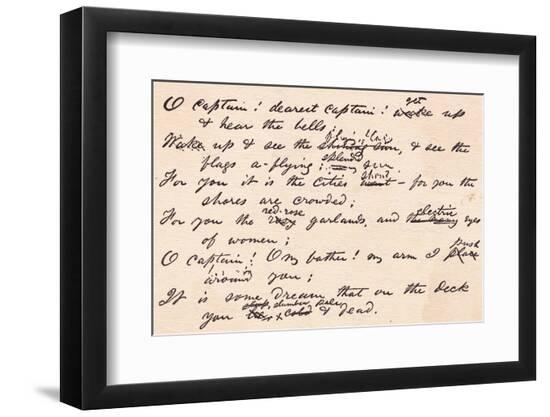 get
O captain! dearest captain! wake up
& hear the bells;
Wake up & see the shining sun, & see the
splendid
flags a-flying; sun
shout
For you it is the cities – for you the
shores are crowded;
red-rose electric
For you the garlands, and eyes
of women;
push
O captain! O my father! my arm I place
around you;
It is some dream that on the deck
slumber pale
you & cold & dead.